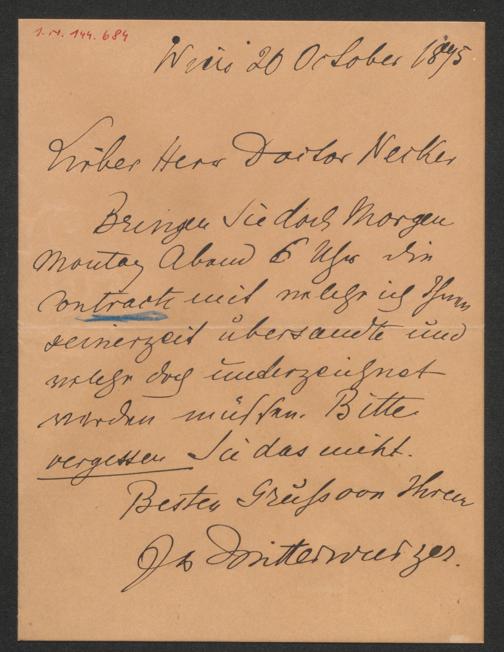 I.N. 144.684
Wien 20 October 1895
Lieber Herr Doctor Necker
Bringen Sie doch Morgen
Montag Abend 6 Uhr die
Contracte mit welche ich Ihnen
seinerzeit übersandte und
welche doch underzeichnet
werden müssen. Bitte
vergessen Sie das nicht.
Besten Gruß von Ihrem
Mitterwurzer.